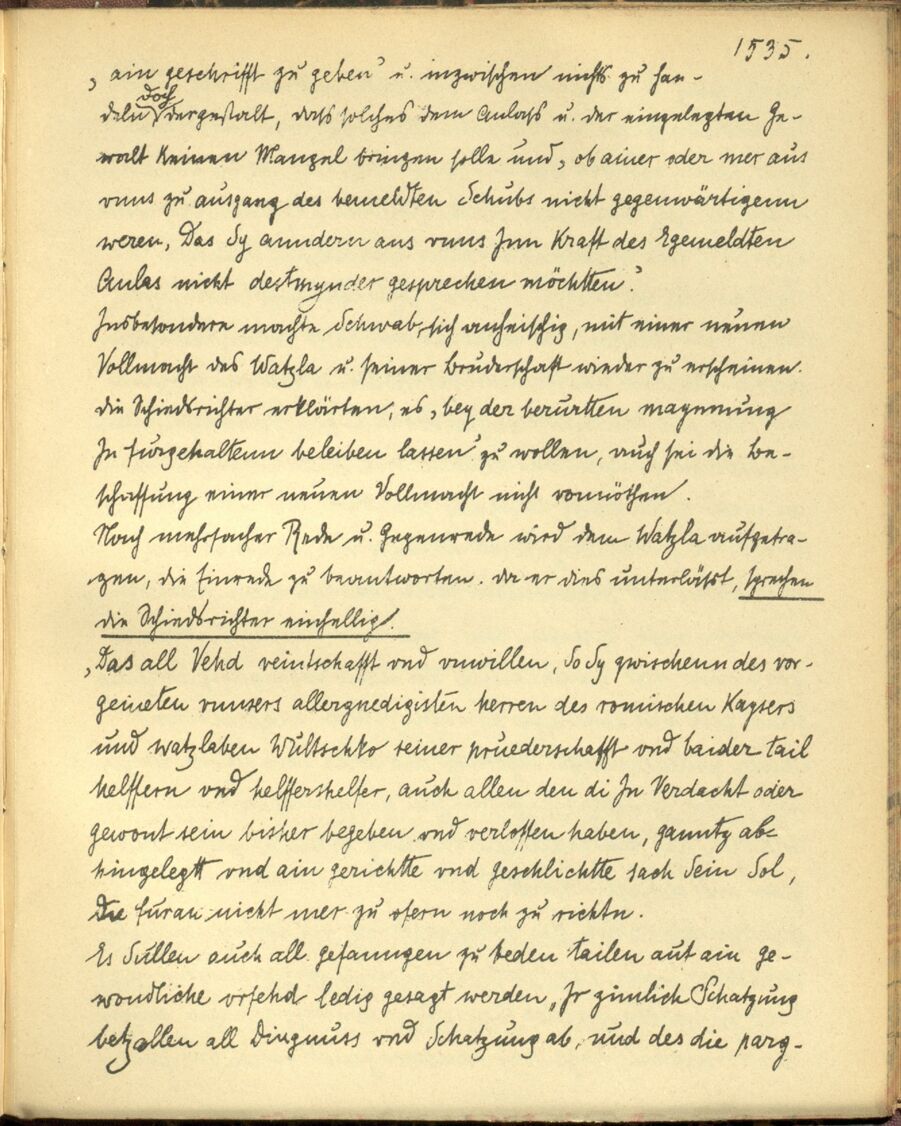 1535.
„ain geschrifft zu geben" u. inzwischen nichts zu han-
doch
deln dergestalt, dass solches dem Anlass u. der eingelegten Ge-
walt keinen Mangel bringen solle und „ob ainer oder mer aus
vnns zu ausgang des bemeldten Schubs nicht gegenwärtigenn
weren, Das Sy anndern aus vnns Jnn Kraft des Egemeldten
Anlas nicht destmynder gesprechen möchtten".
Insbesondere machte Schwab, sich anheischig, mit einer neuen
Vollmacht des Watzla u. seiner Bruderschaft wieder zu erscheinen.
Die Schiedsrichter erklärten, es „bey der berurtten maynnung
In furgehaltenn beleiben lassen" zu wollen, auch sei die Be-
schaffung einer neuen Vollmacht nicht vonnöthen.
Nach mehrfacher Rede u. Gegenrede wird dem Watzla aufgetra-
gen, die Einrede zu beantworten. Da er dies unterlässt, sprechen
die Schiedsrichter einhellig:
„Das all Vehd veintschafft vnd vnwillen, So Sy zwischenn des vor-
gemelten vnnsers allergnedigisten herren des romischen Kaysers
und watzlaben Wultschko seiner pruederschafft vnd baider tail
helffern vnd helffershelfer, auch allen den di Jn Verdacht oder
gewont sein bisher begeben vnd verloffen haben, ganntz ab-
hingelegtt vnd ain gerichtte vnd geschlichtte sach Sein Sol,
Die furan nicht mer zu efern noch zu richtn.
Es Sullen auch all gefanngen zu beden tailen auf ain ge-
wondliche vrfehd ledig gesagt werden, Jr zimlich Schatzung
betzallen all Dingnuss vnd Schatzung ab, und des die parg-